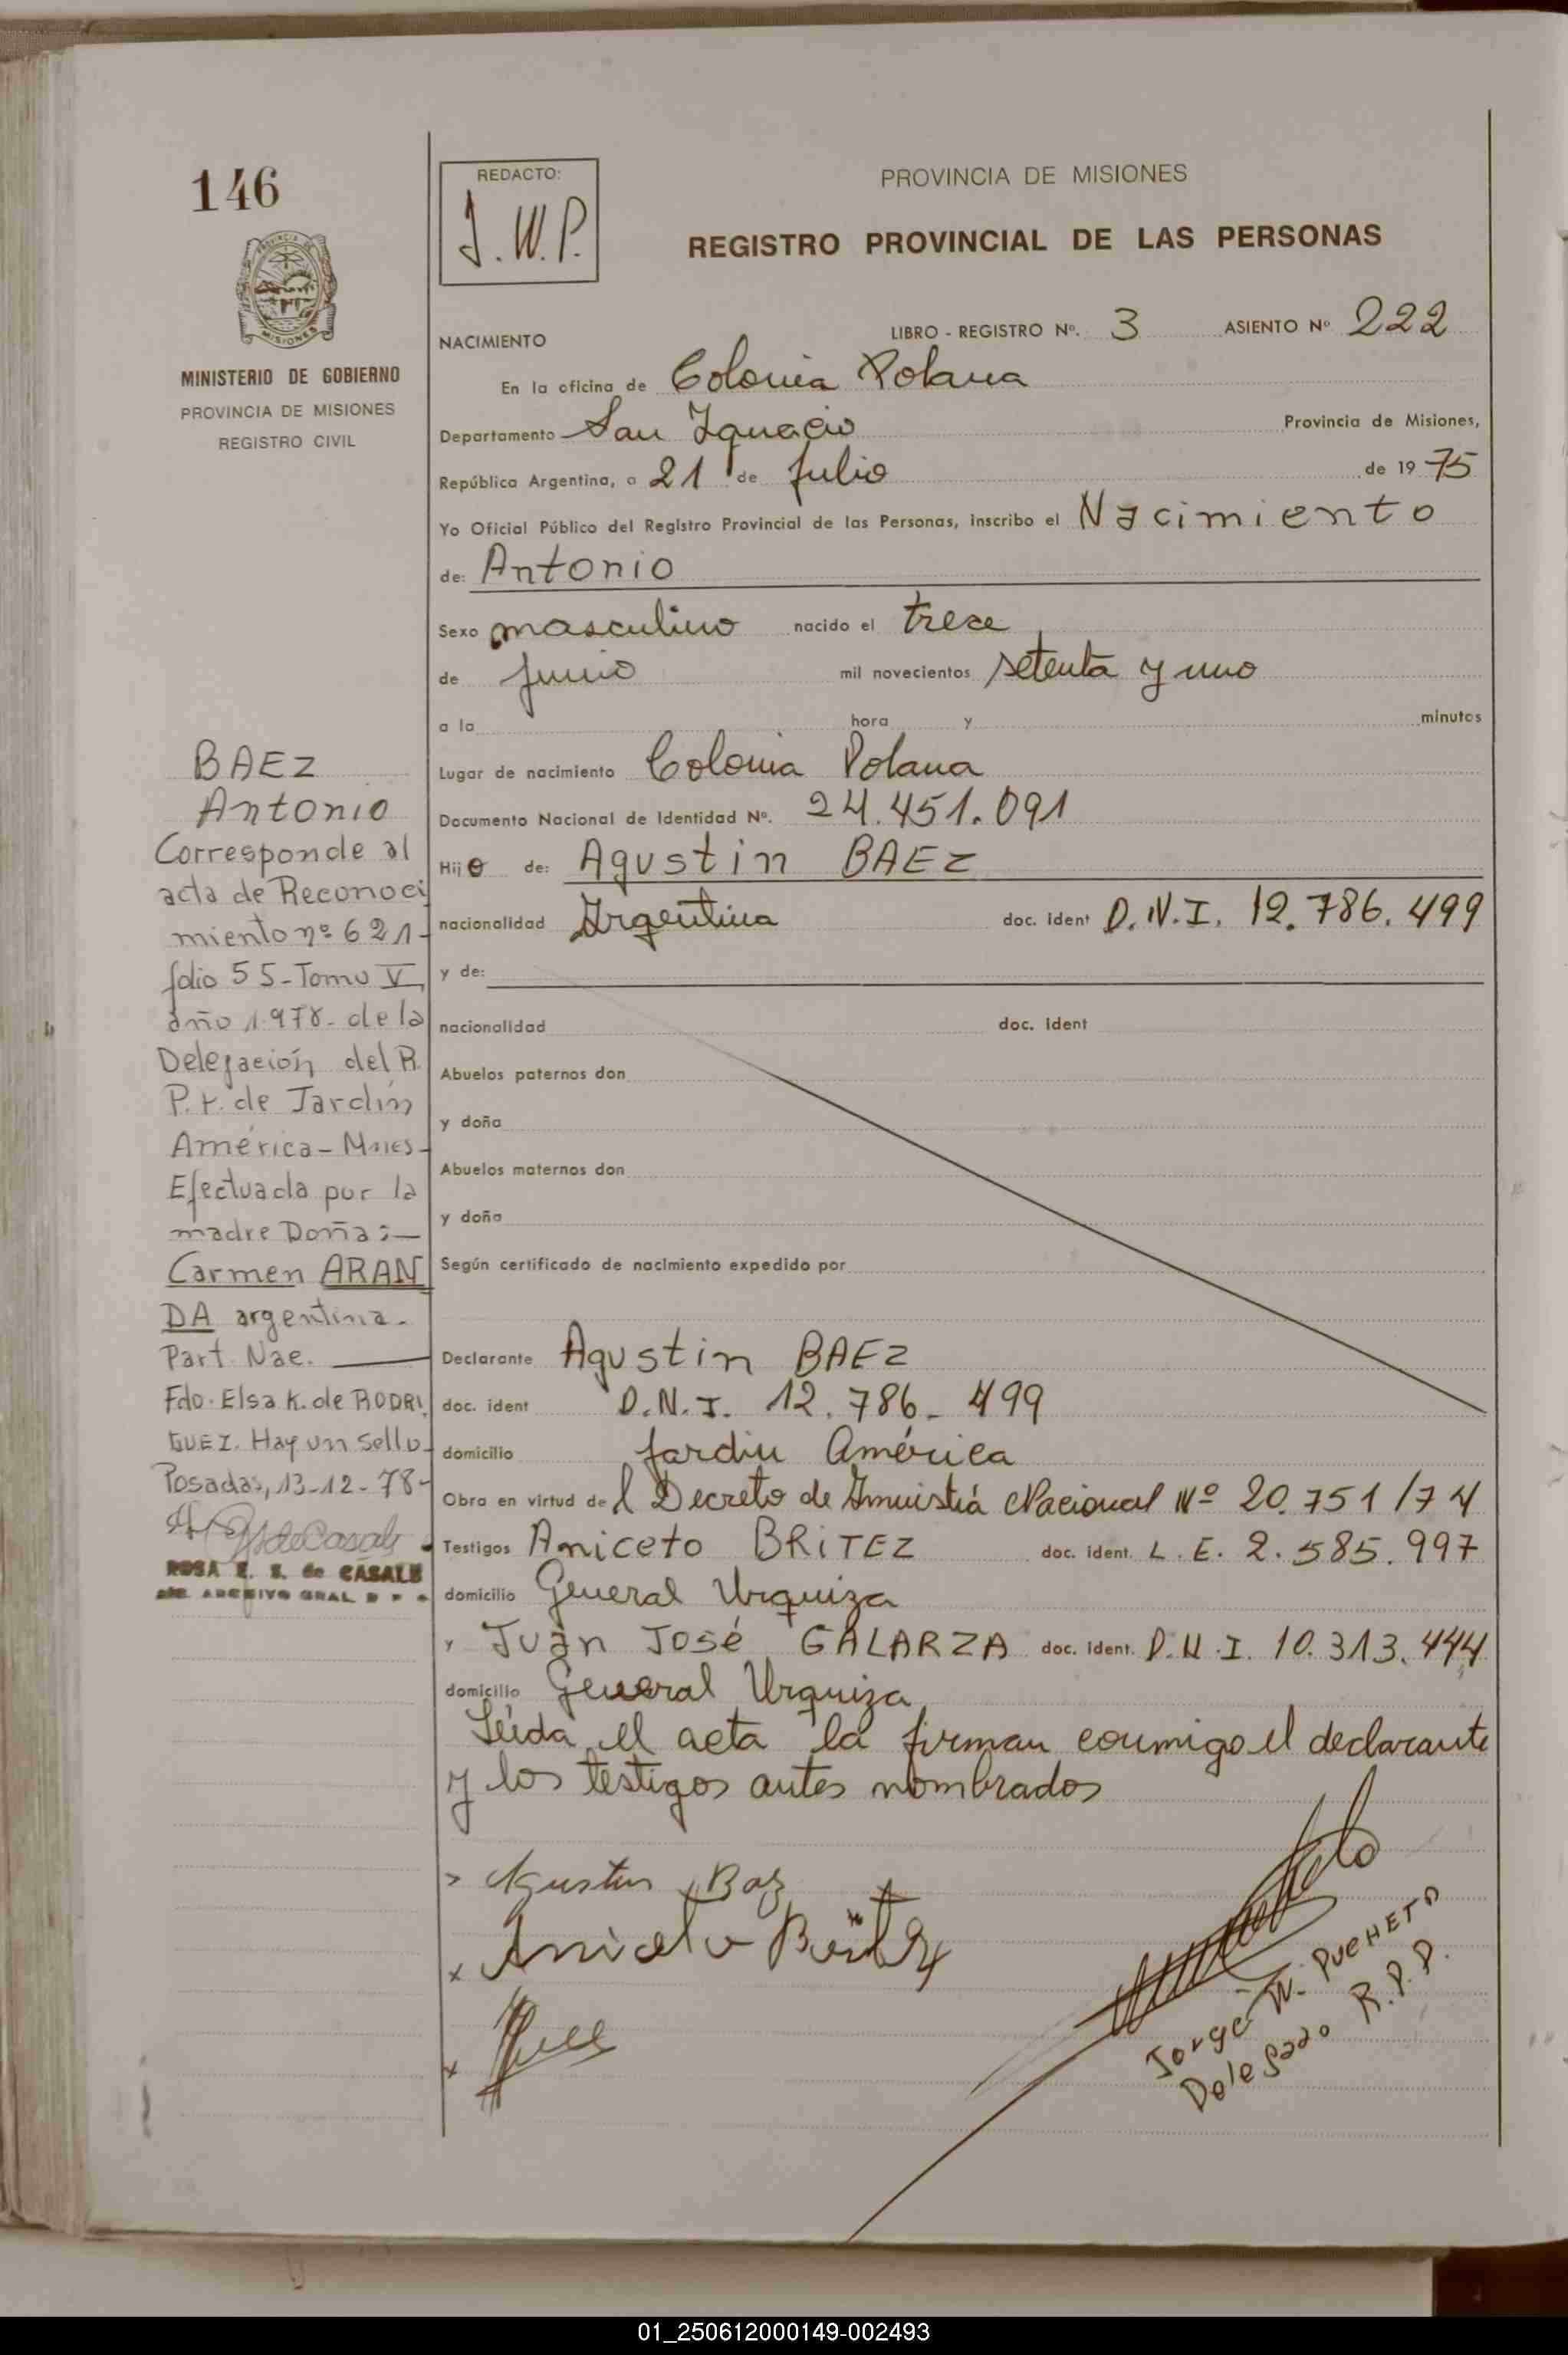 146
MINISTERIO DE GOBIERNO
PROVINCIA DE MISIONES
REGISTRO CIVIL
REDACTO:
J. W. P.
PROVINCIA DE MISIONES
REGISTRO PROVINCIAL DE LAS PERSONAS
NACIMIENTO
LIBRO - REGISTRO Nº. 3 ASIENTO Nº 222
En la oficina de Colonia Polana
Departamento San Ignacio Provincia de Misiones,
República Argentina, a 21 de Julio de 1975
Yo Oficial Público del Registro Provincial de las Personas, inscribo el Nacimiento
de: Antonio
Sexo masculino nacido el trece
de junio mil novecientos setenta y uno
a la hora y minutos
Lugar de nacimiento Colonia Polana
Documento Nacional de Identidad Nº. 24.451.091
Hijo de: Agustin BAEZ
nacionalidad Argentina doc. ident D.N.I. 12.786.499
y de:
nacionalidad doc. ident
Abuelos paternos don
y doña
Abuelos maternos don
y doña
Según certificado de nacimiento expedido por
Declarante Agustin BAEZ
doc. ident D.N.I. 12.786.499
domicilio Jardin América
Obra en virtud del Decreto de Amnistiá Nacional Nº 20.751/74
Testigos Aniceto BRITEZ doc. ident. L.E. 2.585.997
domicilio General Urquiza
y Juan José GALARZA doc. ident. D.N.I. 10.313.444
domicilio General Urquiza
Leida el acta la firman conmigo el declarante
y los testigos antes nombrados
Agustin Baz
Aniceto Britez
Jorge W. PUCHETA
Delegado R.P.P.
BAEZ
Antonio
Corresponde al
acta de Reconoci
miento nº 621-
folio 55-Tomo V
año 1.978- de la
Delegación del R.
P.P. de Jardín
América-Mnes-
Efectuada por la
madre Doña:—
Carmen ARAN
DA argentina.
Part. Nac.
Fdo. Elsa K. de RODRI
GUEZ. Hay un sello-
Posadas, 13-12-78-
ROSA E. S. de CASALS
ARCHIVO GRAL R P P
01_250612000149-002493